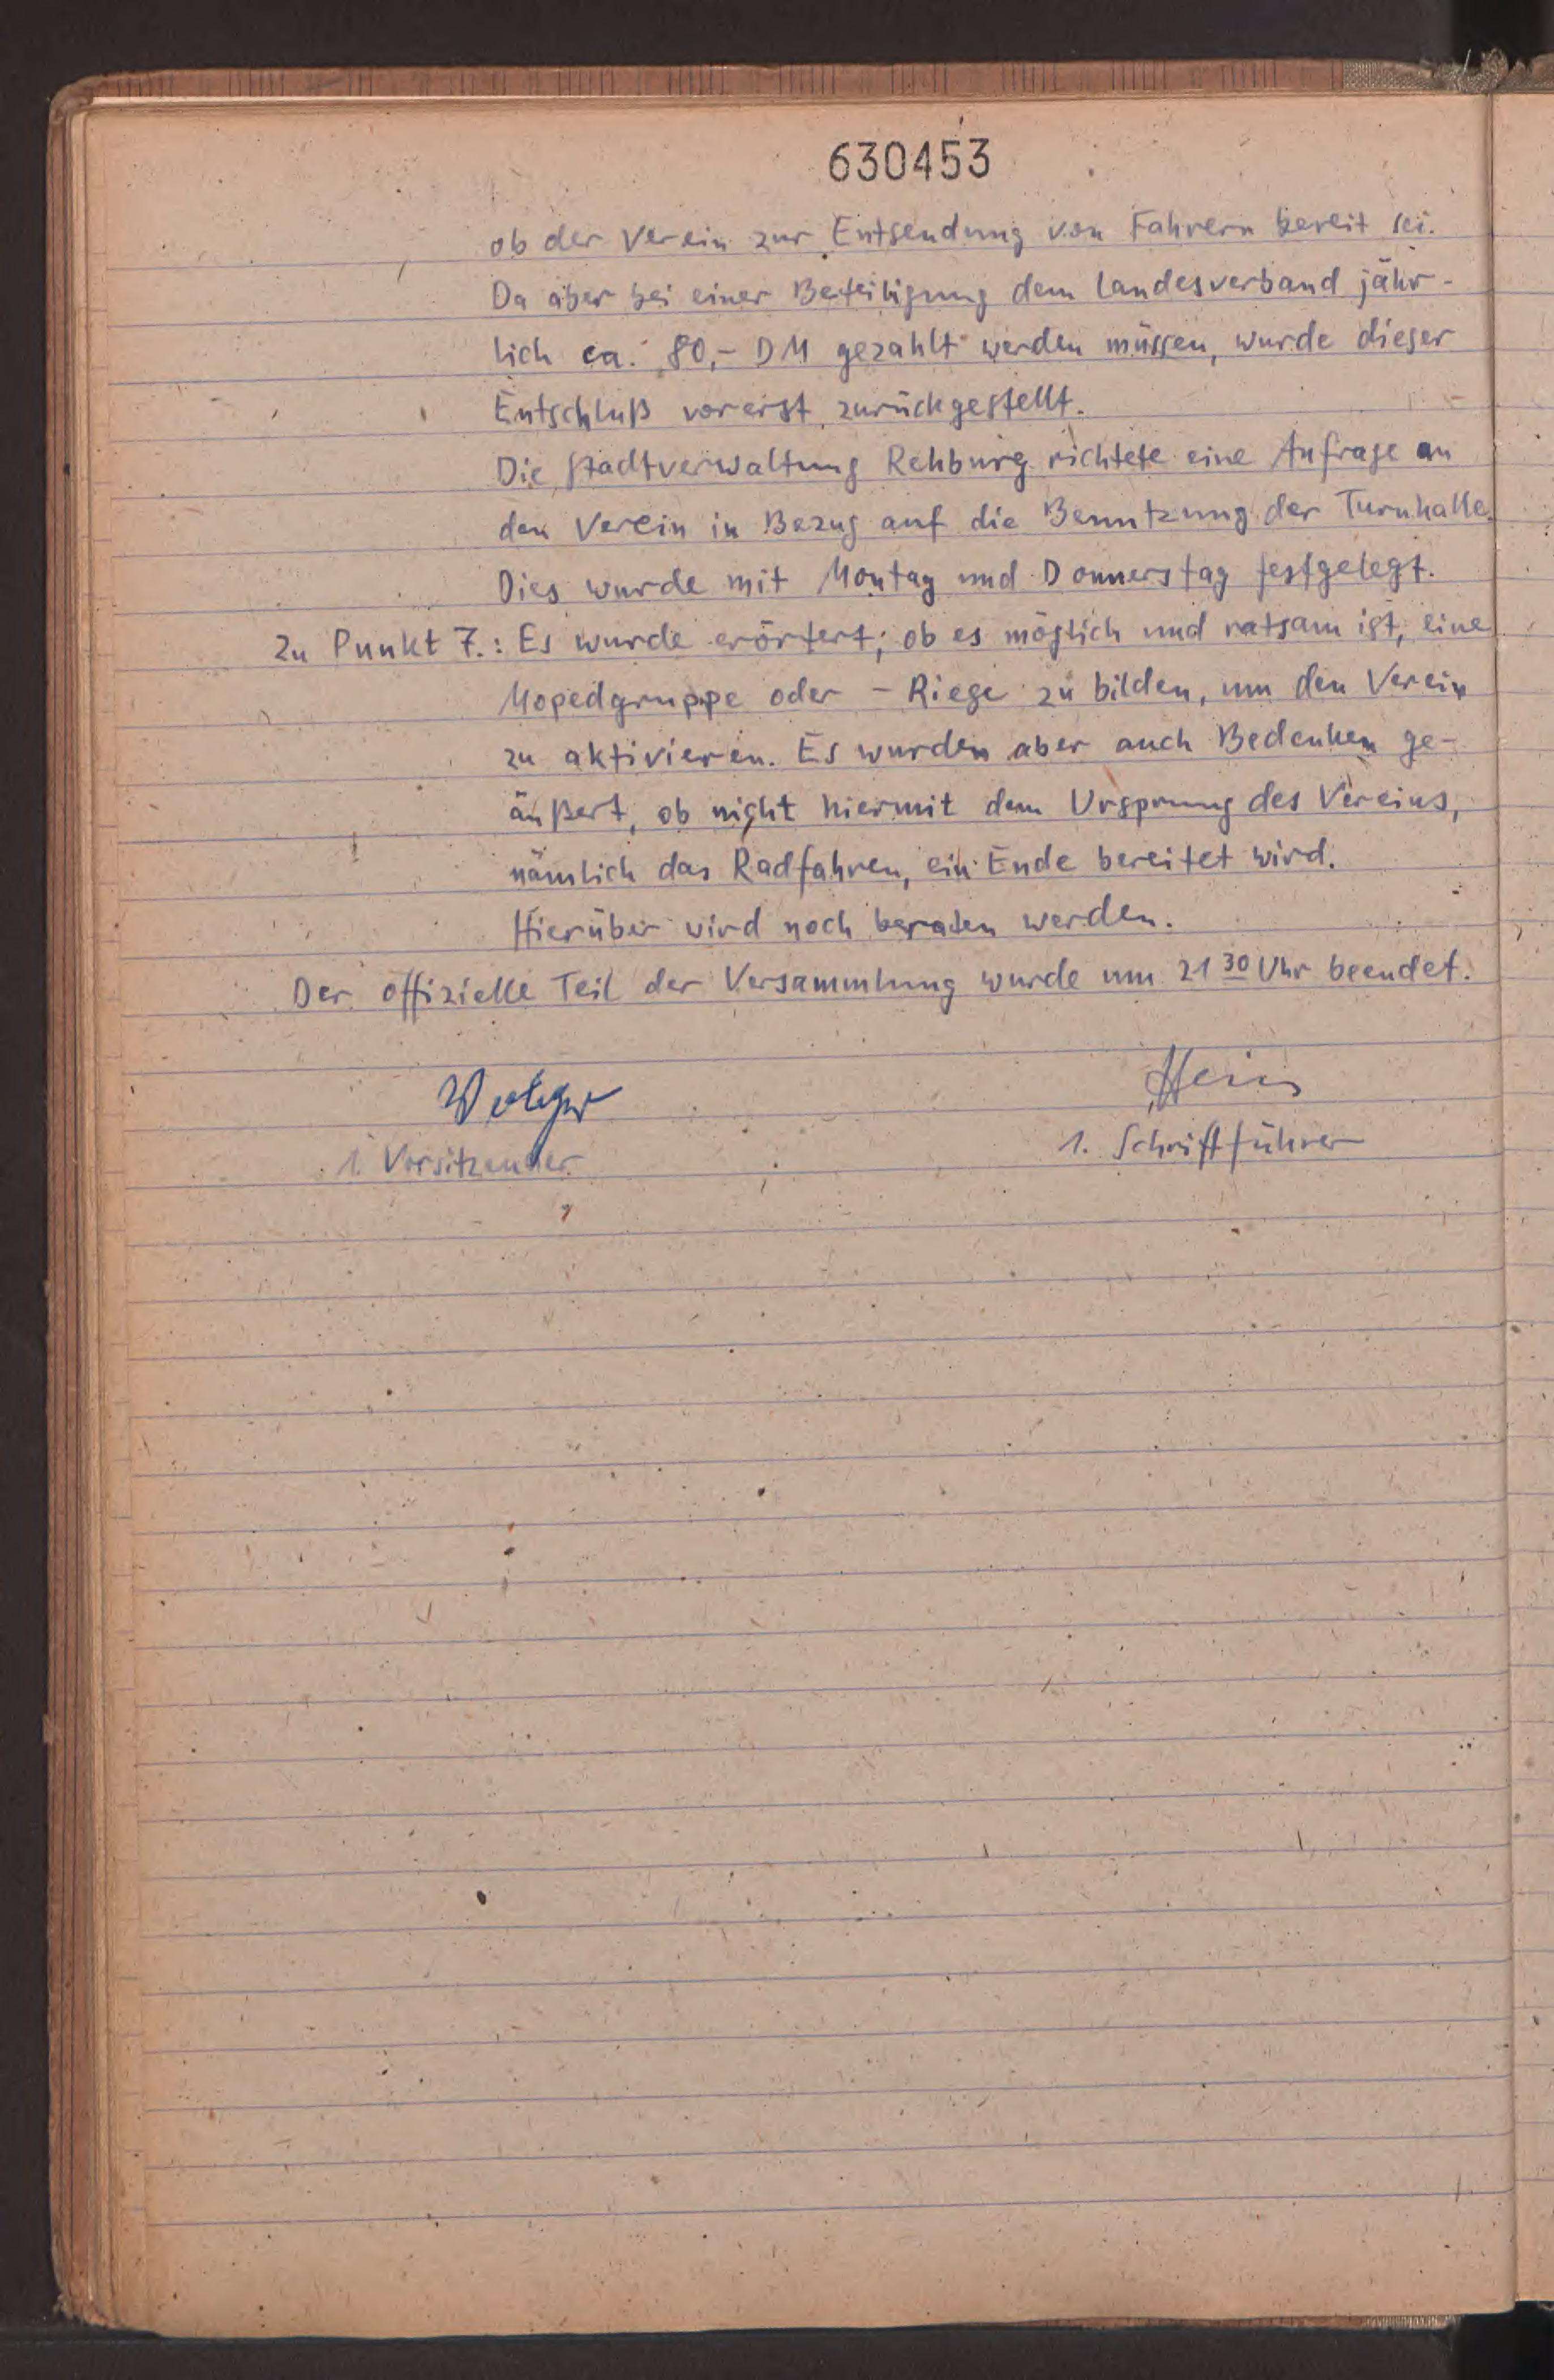 630453
ob der Verein zur Entsendung von Fahrern bereit sei.
Da aber bei einer Beteiligung dem Landesverband jähr-
lich ca. 80,- DM gezahlt werden müssen, wurde dieser
Entschluß vorerst zurückgestellt.
Die Stadtverwaltung Rehburg richtete eine Anfrage an
den Verein in Bezug auf die Benutzung der Turnhalle.
Dies wurde mit Montag und Donnerstag festgelegt.
Zu Punkt 7.: Es wurde erörtert, ob es möglich und ratsam ist, eine
Mopedgruppe oder - Riege zu bilden, um den Verein
zu aktivieren. Es wurden aber auch Bedenken ge-
äußert, ob nicht hiermit dem Ursprung des Vereins,
nämlich das Radfahren, ein Ende bereitet wird.
Hierüber wird noch beraten werden.
Der offizielle Teil der Versammlung wurde um 21 30 Uhr beendet.
1. Vorsitzender
1. Schriftführer